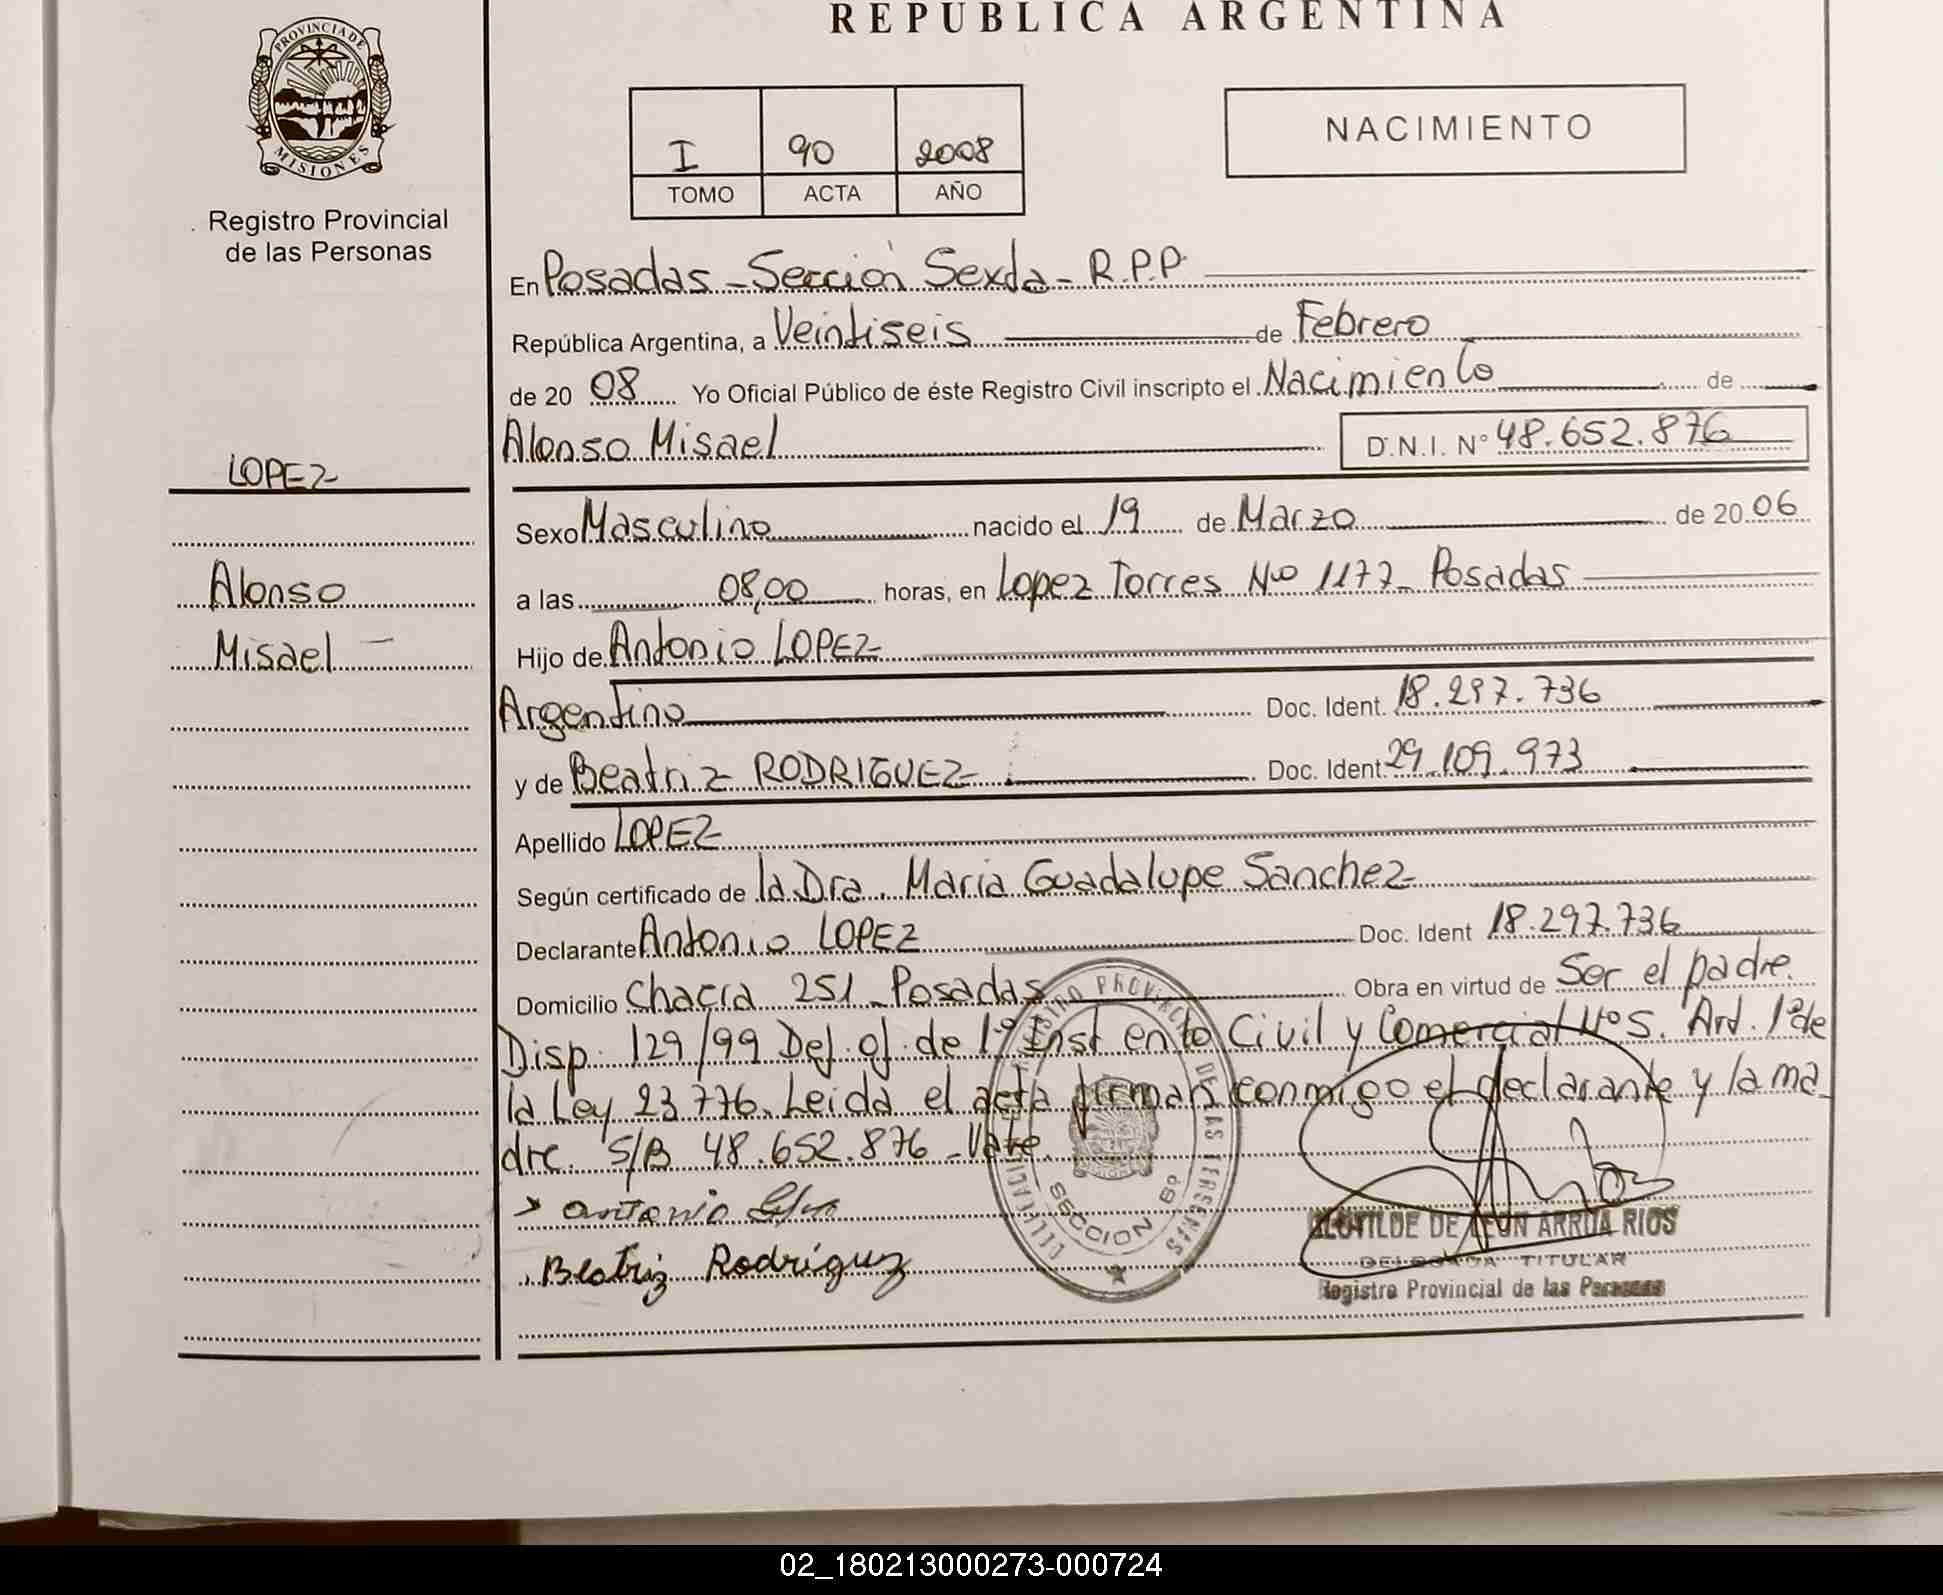 REPUBLICA ARGENTINA
PROVINCIA DE
MISIONES
Registro Provincial
de las Personas
I 90 2008
TOMO ACTA AÑO
NACIMIENTO
En Posadas - Sección Sexta - R.P.P
República Argentina, a Veintiseis de Febrero
de 20 08 Yo Oficial Público de éste Registro Civil inscripto el Nacimiento de
Alonso Misael D.N.I. N° 48.652.876
LOPEZ
Alonso
Misael
Sexo Masculino nacido el 19 de Marzo de 20 06
a las 08,00 horas, en Lopez Torres Nº 1177 - Posadas
Hijo de Antonio LOPEZ
Argentino Doc. Ident. 18.297.736
y de Beatriz RODRIGUEZ Doc. Ident. 29.109.973
Apellido LOPEZ
Según certificado de la Dra. Maria Guadalupe Sanchez
Declarante Antonio LOPEZ Doc. Ident 18.297.736
Domicilio Chacra 251 - Posadas Obra en virtud de Ser el padre.
Disp. 129/99 Def. of. de 1º Inst en lo Civil y Comercial Nº 5. Art. 1º de
la Ley 23.776. Leida el acta firman conmigo el declarante y la ma-
dre. S/B 48.652.876 - Vale.
Antonio
Beatriz Rodriguez
REGISTRO PROVINCIAL DE LAS PERSONAS
SECCION 6º
CLOTILDE DE LEON ARRUA RIOS
DELEGADA TITULAR
Registro Provincial de las Personas
02_180213000273-000724